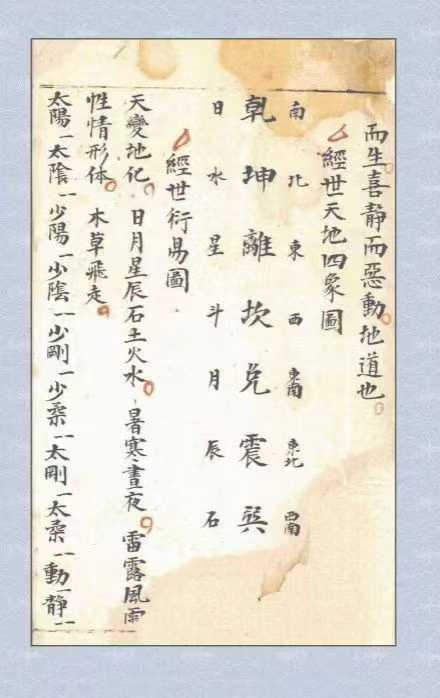 而生喜靜而惡動地道也
經世天地四象圖
南 北 東 西 東南 東北 西南
乾 坤 離 坎 兌 震 巽
日 水 星 斗 月 辰 石
經世衍易圖
天變地化 日月星辰石土火水 暑寒晝夜 雷露風雨
性情形体 木草飛走
太陽一太陰一少陽一少陰一少剛一少柔一太剛一太柔一動一靜一